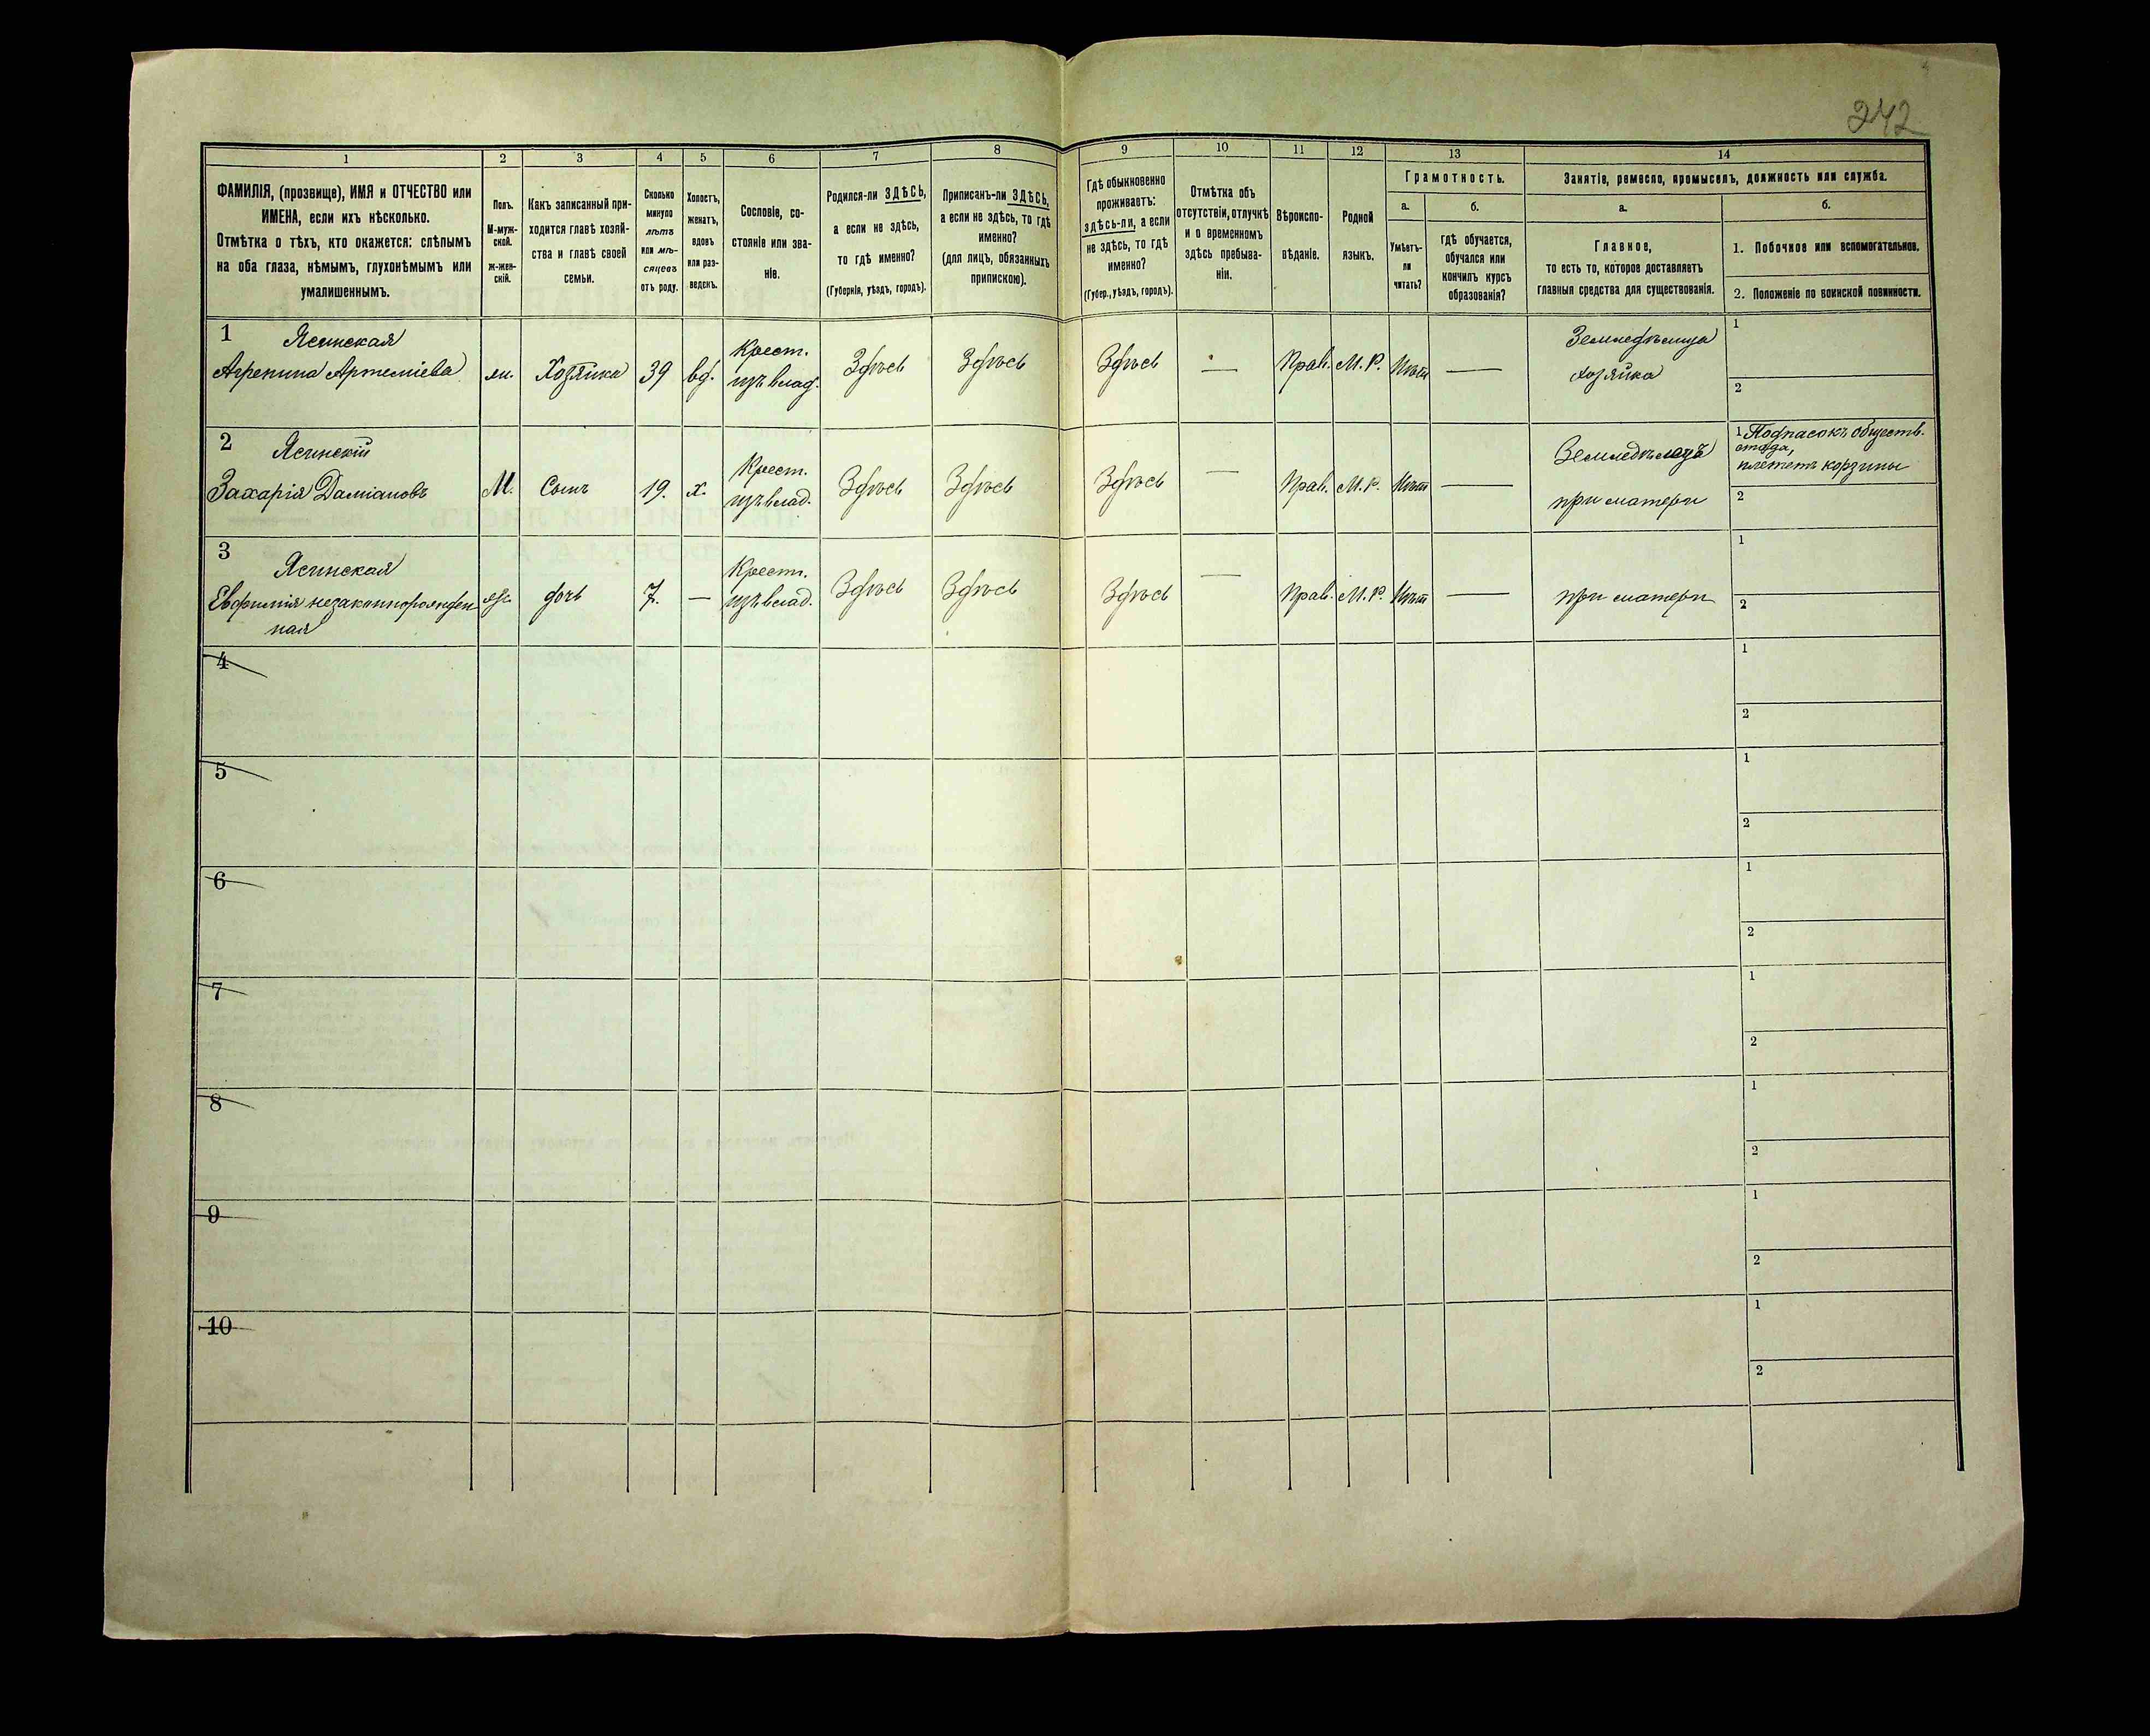 242
1 2 3 4 5 6 7 8 9 10 11 12 13 14
ФАМИЛІЯ, (прозвище), ИМЯ и ОТЧЕСТВО или
ИМЕНА, если ихъ нѣсколько.
Отмѣтка о тѣхъ, кто окажется: слѣпымъ
на оба глаза, нѣмымъ, глухонѣмымъ или
умалишеннымъ.
Полъ.
М-муж-
ской.
Ж-жен-
скій.
Какъ записанный при-
ходится главѣ хозяй-
ства и главѣ своей
семьи.
Сколько
минуло
лѣтъ
или мѣ-
сяцевъ
отъ роду.
Холостъ,
женатъ,
вдовъ
или раз-
веденъ.
Сословіе, со-
стояніе или зва-
ніе.
Родился-ли ЗДѢСЬ,
а если не здѣсь,
то гдѣ именно?
(Губернія, уѣздъ, городъ).
Приписанъ-ли ЗДѢСЬ,
а если не здѣсь, то гдѣ
именно?
(для лицъ, обязанныхъ
припискою).
Гдѣ обыкновенно
проживаетъ:
здѣсь-ли, а если
не здѣсь, то гдѣ
именно?
(Губер., уѣздъ, городъ).
Отмѣтка объ
отсутствіи, отлучкѣ
и о временномъ
здѣсь пребыва-
ніи.
Вѣроиспо-
вѣданіе.
Родной
языкъ.
Грамотность.
а.
Умѣетъ-
ли
читать?
б.
гдѣ обучается,
обучался или
кончилъ курсъ
образованія?
Занятіе, ремесло, промыселъ, должность или служба.
а.
Главное,
то есть то, которое доставляетъ
главныя средства для существованія.
б.
1. Побочное или вспомогательное.
2. Положеніе по воинской повинности.
1 Ясинская
Агрепина Артеміева
ж. Хозяйка 39 вд.
Крест.
изъ влад.
Здѣсь Здѣсь Здѣсь — Прав. М. Р. Нѣтъ —
Земледѣлица
хозяйка
1
2
2 Ясинскій
Захарія Даміановъ
М. Сынъ 19. х.
Крест.
изъ влад.
Здѣсь Здѣсь Здѣсь — Прав. М. Р. Нѣтъ —
Земледѣлецъ
при матери
1 Подпасокъ обществ.
стада,
плететъ корзины
2
3 Ясинская
Евфимія незаконнорожден
ная
ж. дочь 7. —
Крест.
изъ влад.
Здѣсь Здѣсь Здѣсь — Прав. М. Р. Нѣтъ —
при матери
1
2
4
1
2
5
1
2
6
1
2
7
1
2
8
1
2
9
1
2
10
1
2